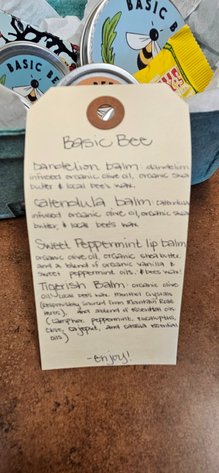 BASIC BEE
BASIC BE
BASIC
Basic Bee
Dandelion balm: dandelion
infused organic olive oil, organic shea
butter & local bees wax.
Calendula balm calendula
infused organic olive oil, organic shea
butter & local bees wax.
Sweet Peppermint lip balm
organic olive oil, organic shea butter,
and a blend of organic vanilla &
sweet peppermint oils. & bees wax!
Tigerish Balm: organic olive
oil local bees wax menthol crystals
(responsibly sourced from Mountain Rose
Herbs), and a blend of essential oils
(camphor, peppermint, eucalyptus,
clove, cajeput, and cassia essential
oils)
-enjoy!